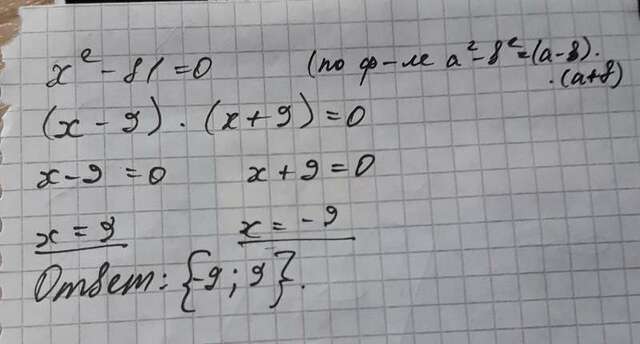 x² - 81 = 0 (по ф-ле a² - в² = (a - в) ·
· (a + в)
(x - 9) · (x + 9) = 0
x - 9 = 0 x + 9 = 0
x = 9 x = -9
Ответ: {-9; 9}.